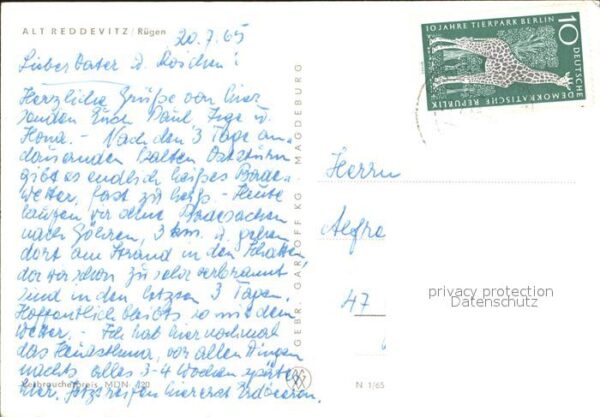 ALT REDDEVITZ / Rügen
20.7.65
Lieber Vater u. Roschen!
Herzliche Grüße von hier
senden Euch Paul, Inge u.
Hona. - Nach den 3 Tage an-
dauernden kalten Oststurm
gibt es endlich heißes Bade-
wetter, fast zu heiß - Heute
laufen wir ohne Badesachen
nach Göhren, 3 km u. gehen
dort am Strand in den Schatten,
da wir schon zu sehr verbrannt
sind in den letzten 3 Tagen.
Hoffentlich bleibt es so mit dem
Wetter. - Ich hab hier nochmal
das Heuasthma, vor allen Dingen
nachts, alles 3-4 Wochen später
hier. Jetzt reifen hier erst Erdbeeren.
Verbraucherpreis MDN -,20
GEBR. GARLOFF KG · MAGDEBURG
N 1/65
10 JAHRE TIERPARK BERLIN
10
DEUTSCHE
DEMOKRATISCHE REPUBLIK
Herrn
Alfre
47
privacy protection
Datenschutz